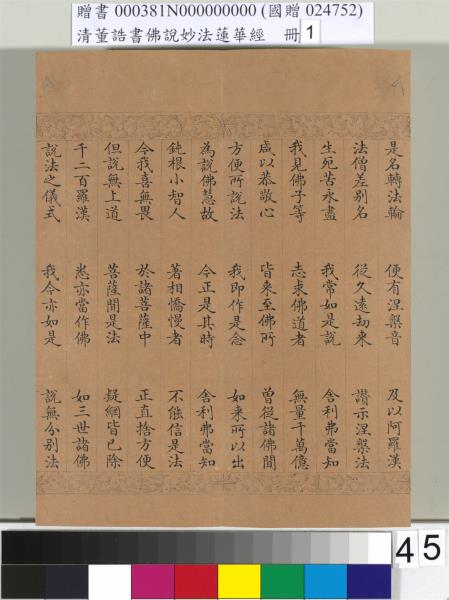 贈書 000381N000000000 (國贈 024752)
清董誥書佛說妙法蓮華經 冊 1
是名轉法輪 便有涅槃音 及以阿羅漢
法僧差別名 從久遠劫來 讚示涅槃法
生死苦永盡 我常如是說 舍利弗當知
我見佛子等 志求佛道者 無量千萬億
咸以恭敬心 皆來至佛所 曾從諸佛聞
方便所說法 我即作是念 如來所以出
為說佛慧故 今正是其時 舍利弗當知
鈍根小智人 著相憍慢者 不能信是法
今我喜無畏 於諸菩薩中 正直捨方便
但說無上道 菩薩聞是法 疑網皆已除
千二百羅漢 悉亦當作佛 如三世諸佛
說法之儀式 我今亦如是 說無分別法
45